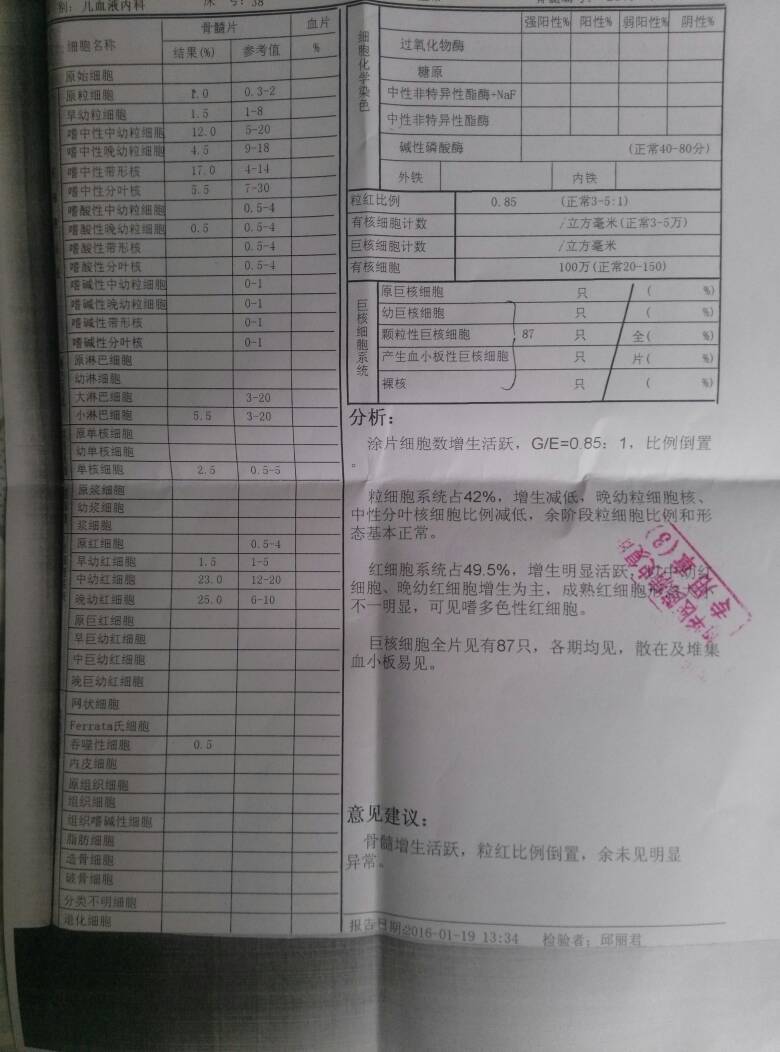 别: 儿血液内科
床 号: 38
细胞名称 骨髓片 血片
结果(%) 参考值 %
原始细胞
原粒细胞 1.0 0.3-2
早幼粒细胞 1.5 1-8
嗜中性中幼粒细胞 12.0 5-20
嗜中性晚幼粒细胞 4.5 9-18
嗜中性带形核 17.0 4-14
嗜中性分叶核 5.5 7-30
嗜酸性中幼粒细胞 0.5-4
嗜酸性晚幼粒细胞 0.5 0.5-4
嗜酸性带形核 0.5-4
嗜酸性分叶核 0.5-4
嗜碱性中幼粒细胞 0-1
嗜碱性晚幼粒细胞 0-1
嗜碱性带形核 0-1
嗜碱性分叶核 0-1
原淋巴细胞
幼淋细胞
大淋巴细胞 3-20
小淋巴细胞 5.5 3-20
原单核细胞
幼单核细胞
单核细胞 2.5 0.5-5
原浆细胞
幼浆细胞
浆细胞
原红细胞 0.5-4
早幼红细胞 1.5 1-5
中幼红细胞 23.0 12-20
晚幼红细胞 25.0 6-10
原巨红细胞
早巨幼红细胞
中巨幼红细胞
晚巨幼红细胞
网状细胞
Ferrata氏细胞
吞噬性细胞 0.5
内皮细胞
原组织细胞
组织细胞
组织嗜碱性细胞
脂肪细胞
造骨细胞
破骨细胞
分类不明细胞
退化细胞
细胞化学染色 强阳性% 阳性% 弱阳性% 阴性%
过氧化物酶
糖原
中性非特异性酯酶+NaF
中性非特异性酯酶
碱性磷酸酶 (正常40-80分)
外铁 内铁
粒红比例 0.85 (正常3-5:1)
有核细胞计数 /立方毫米(正常3-5万)
巨核细胞计数 /立方毫米
有核细胞 100万(正常20-150)
巨核细胞系统
原巨核细胞 只 ( %)
幼巨核细胞 只 ( %)
颗粒性巨核细胞 87 只 全( %)
产生血小板性巨核细胞 只 片( %)
裸核 只 ( %)
分析:
涂片细胞数增生活跃，G/E=0.85：1，比例倒置
。
粒细胞系统占42%，增生减低，晚幼粒细胞核、
中性分叶核细胞比例减低，余阶段粒细胞比例和形
态基本正常。
红细胞系统占49.5%，增生明显活跃，以中幼红
细胞、晚幼红细胞增生为主，成熟红细胞形态大小
不一明显，可见嗜多色性红细胞。
巨核细胞全片见有87只，各期均见，散在及堆集
血小板易见。
专用章(3)
意见建议:
骨髓增生活跃，粒红比例倒置，余未见明显
异常。
报告日期:2016-01-19 13:34 检验者: 邱丽君